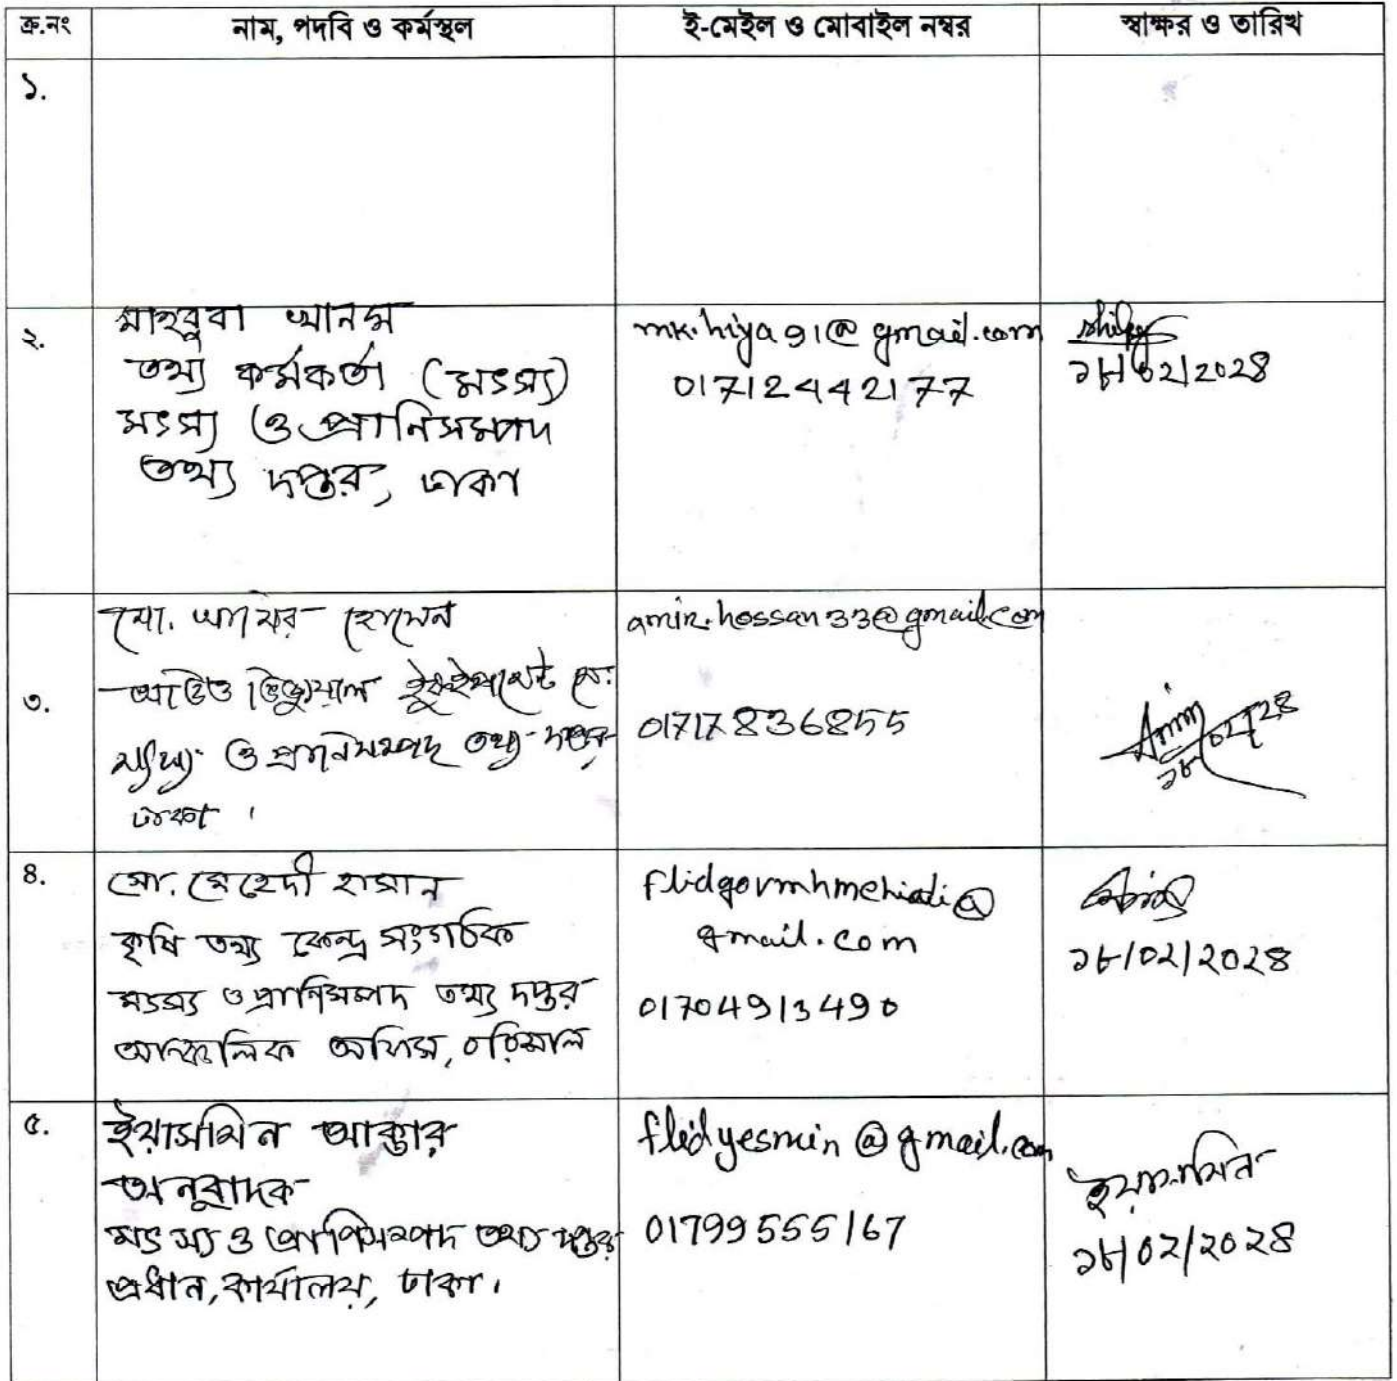 ক্র.নং নাম, পদবি ও কর্মস্থল ই-মেইল ও মোবাইল নম্বর স্বাক্ষর ও তারিখ
১.
২.
মাহবুবা খানম
তথ্য কর্মকর্তা (মৎস্য)
মৎস্য ও প্রাণিসম্পদ
তথ্য দপ্তর, ঢাকা
mk.hiya91@gmail.com
01712442177
১৮/০২/২০২৪
৩.
মো. আমির হোসেন
অডিও ভিজ্যুয়াল
মৎস্য ও প্রানিসম্পদ তথ্য দপ্তর,
ঢাকা ।
amir.hossan33@gmail.com
01717836855
Amir
৪.
মো. মেহেদী হাসান
কৃষি তথ্য কেন্দ্র সংগঠক
মৎস্য ও প্রাণিসম্পদ তথ্য দপ্তর
আঞ্চলিক অফিস, বরিশাল
gmail.com
01704913490
১৮/০২/২০২৪
৫.
ইয়াসমিন আক্তার
অনুবাদক
মৎস্য ও প্রাণিসম্পদ তথ্য দপ্তর
প্রধান, কার্যালয়, ঢাকা।
flidyesmin@gmail.com
01799555167
ইয়াসমিন
১৮/০২/২০২৪